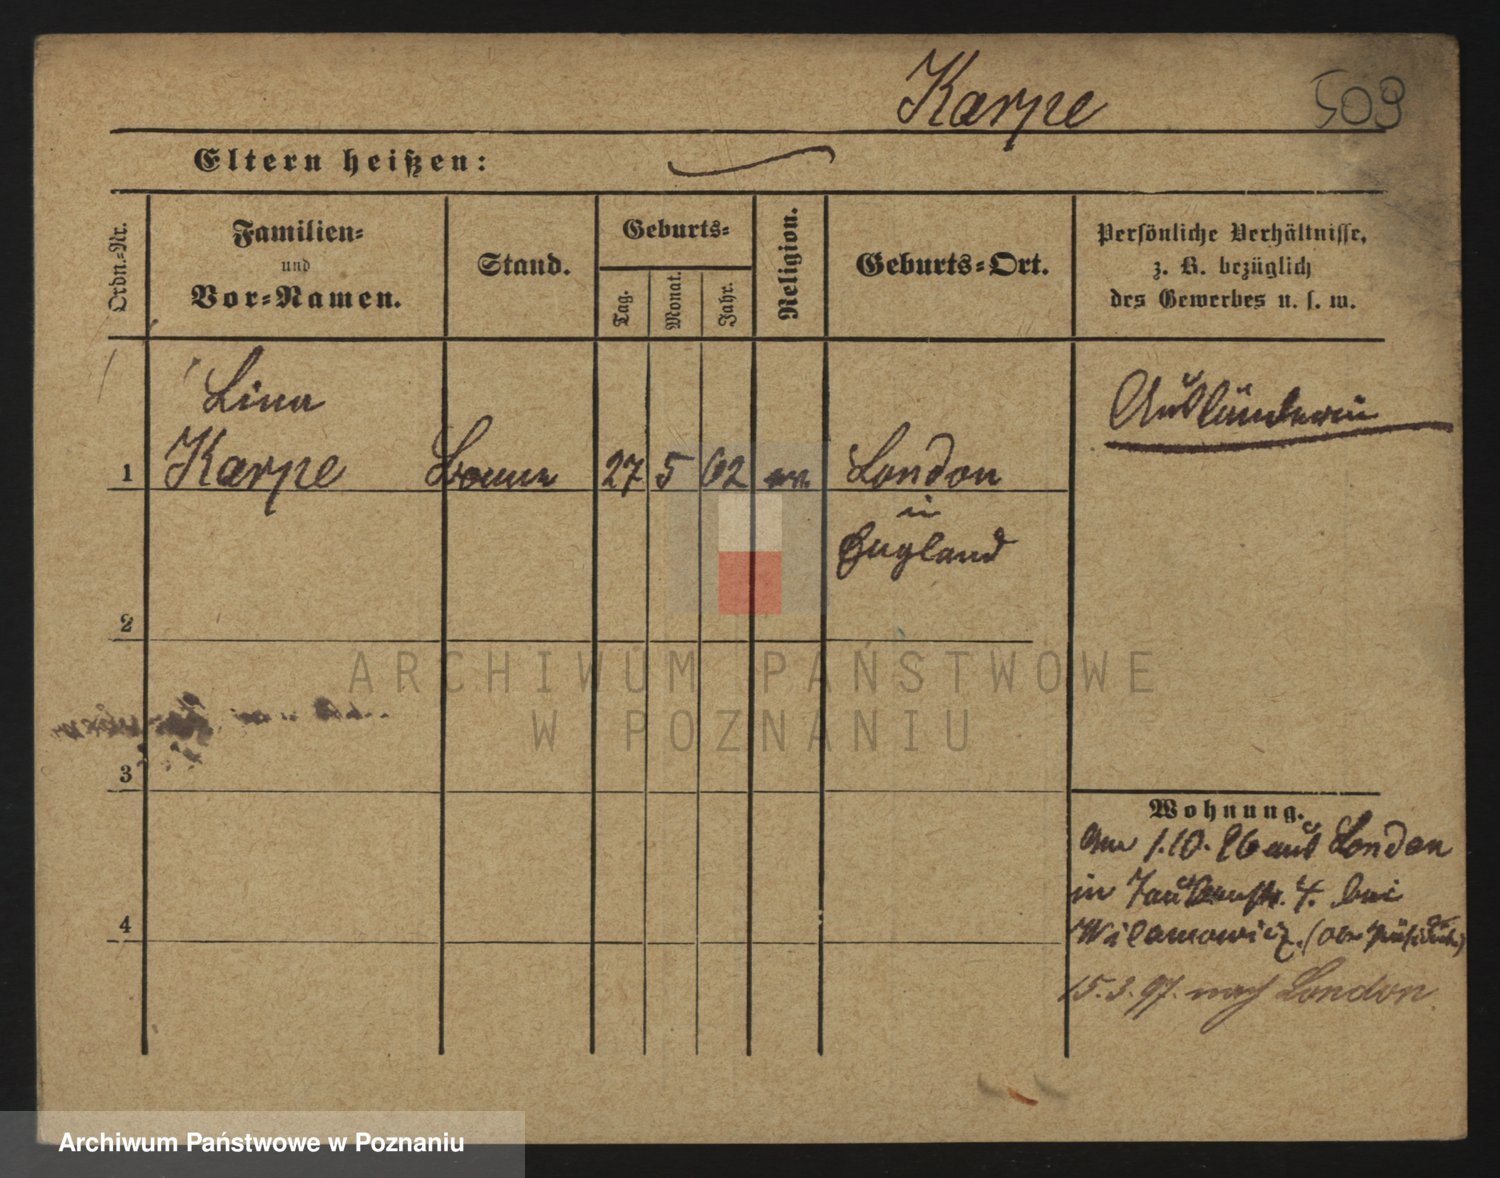 Karpe
509
Eltern heißen:
Ordn.-Nr.
Familien-
und
Vor-Namen.
Stand.
Geburts-
Tag.
Monat.
Jahr.
Religion.
Geburts-Ort.
Persönliche Verhältnisse,
z. B. bezüglich
des Gewerbes u. s. w.
Lina
Ausländerin
1 Karpe Bonne 27 5 62 ev. London
in
England
2
ARCHIWUM PAŃSTWOWE
W POZNANIU
3
Wohnung.
Am 1.10.96 aus London
in Taubenstr. 4. bei
Wilamowicz. (Ober
4
15.3.97. nach London
Archiwum Państwowe w Poznaniu